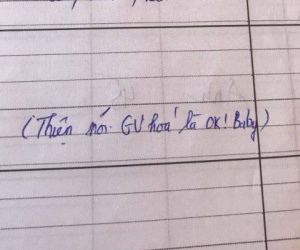 (Thiện nói: GV hoá là OK! Baby)